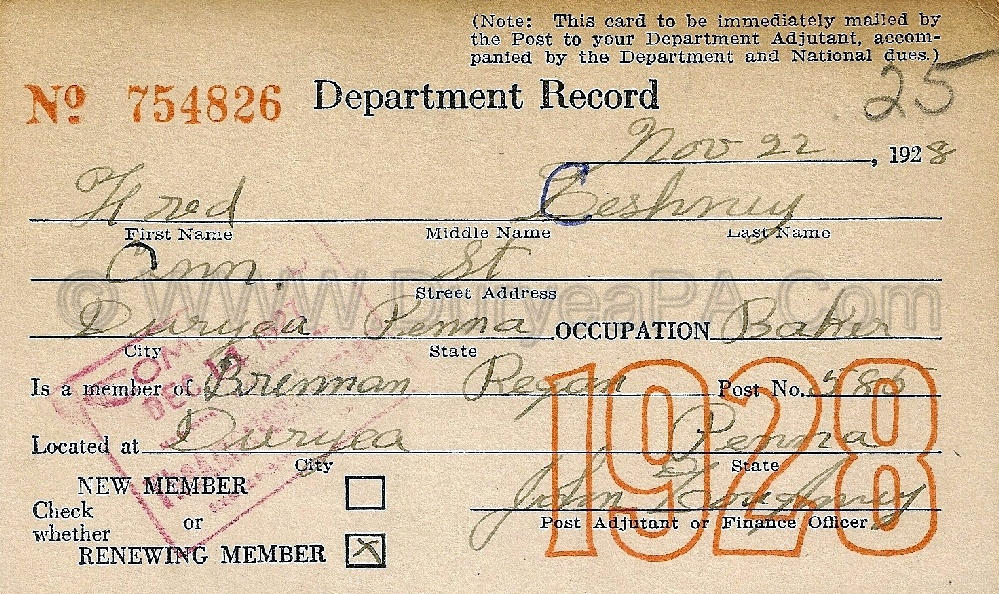 (Note: This card to be immediately mailed by
the Post to your Department Adjutant, accom-
panied by the Department and National dues.)
25
No. 754826 Department Record
Nov 22, 1928
Fred
First Name Middle Name Last Name
Ann St
© WWW.DuryeaPA.Com
Street Address
Duryea Penna OCCUPATION Baker
City State
Is a member of Brennan Regan Post No. 585
Located at Duryea Penna
City State
NEW MEMBER
Check
whether
or
RENEWING MEMBER X
John
Post Adjutant or Finance Officer
1928